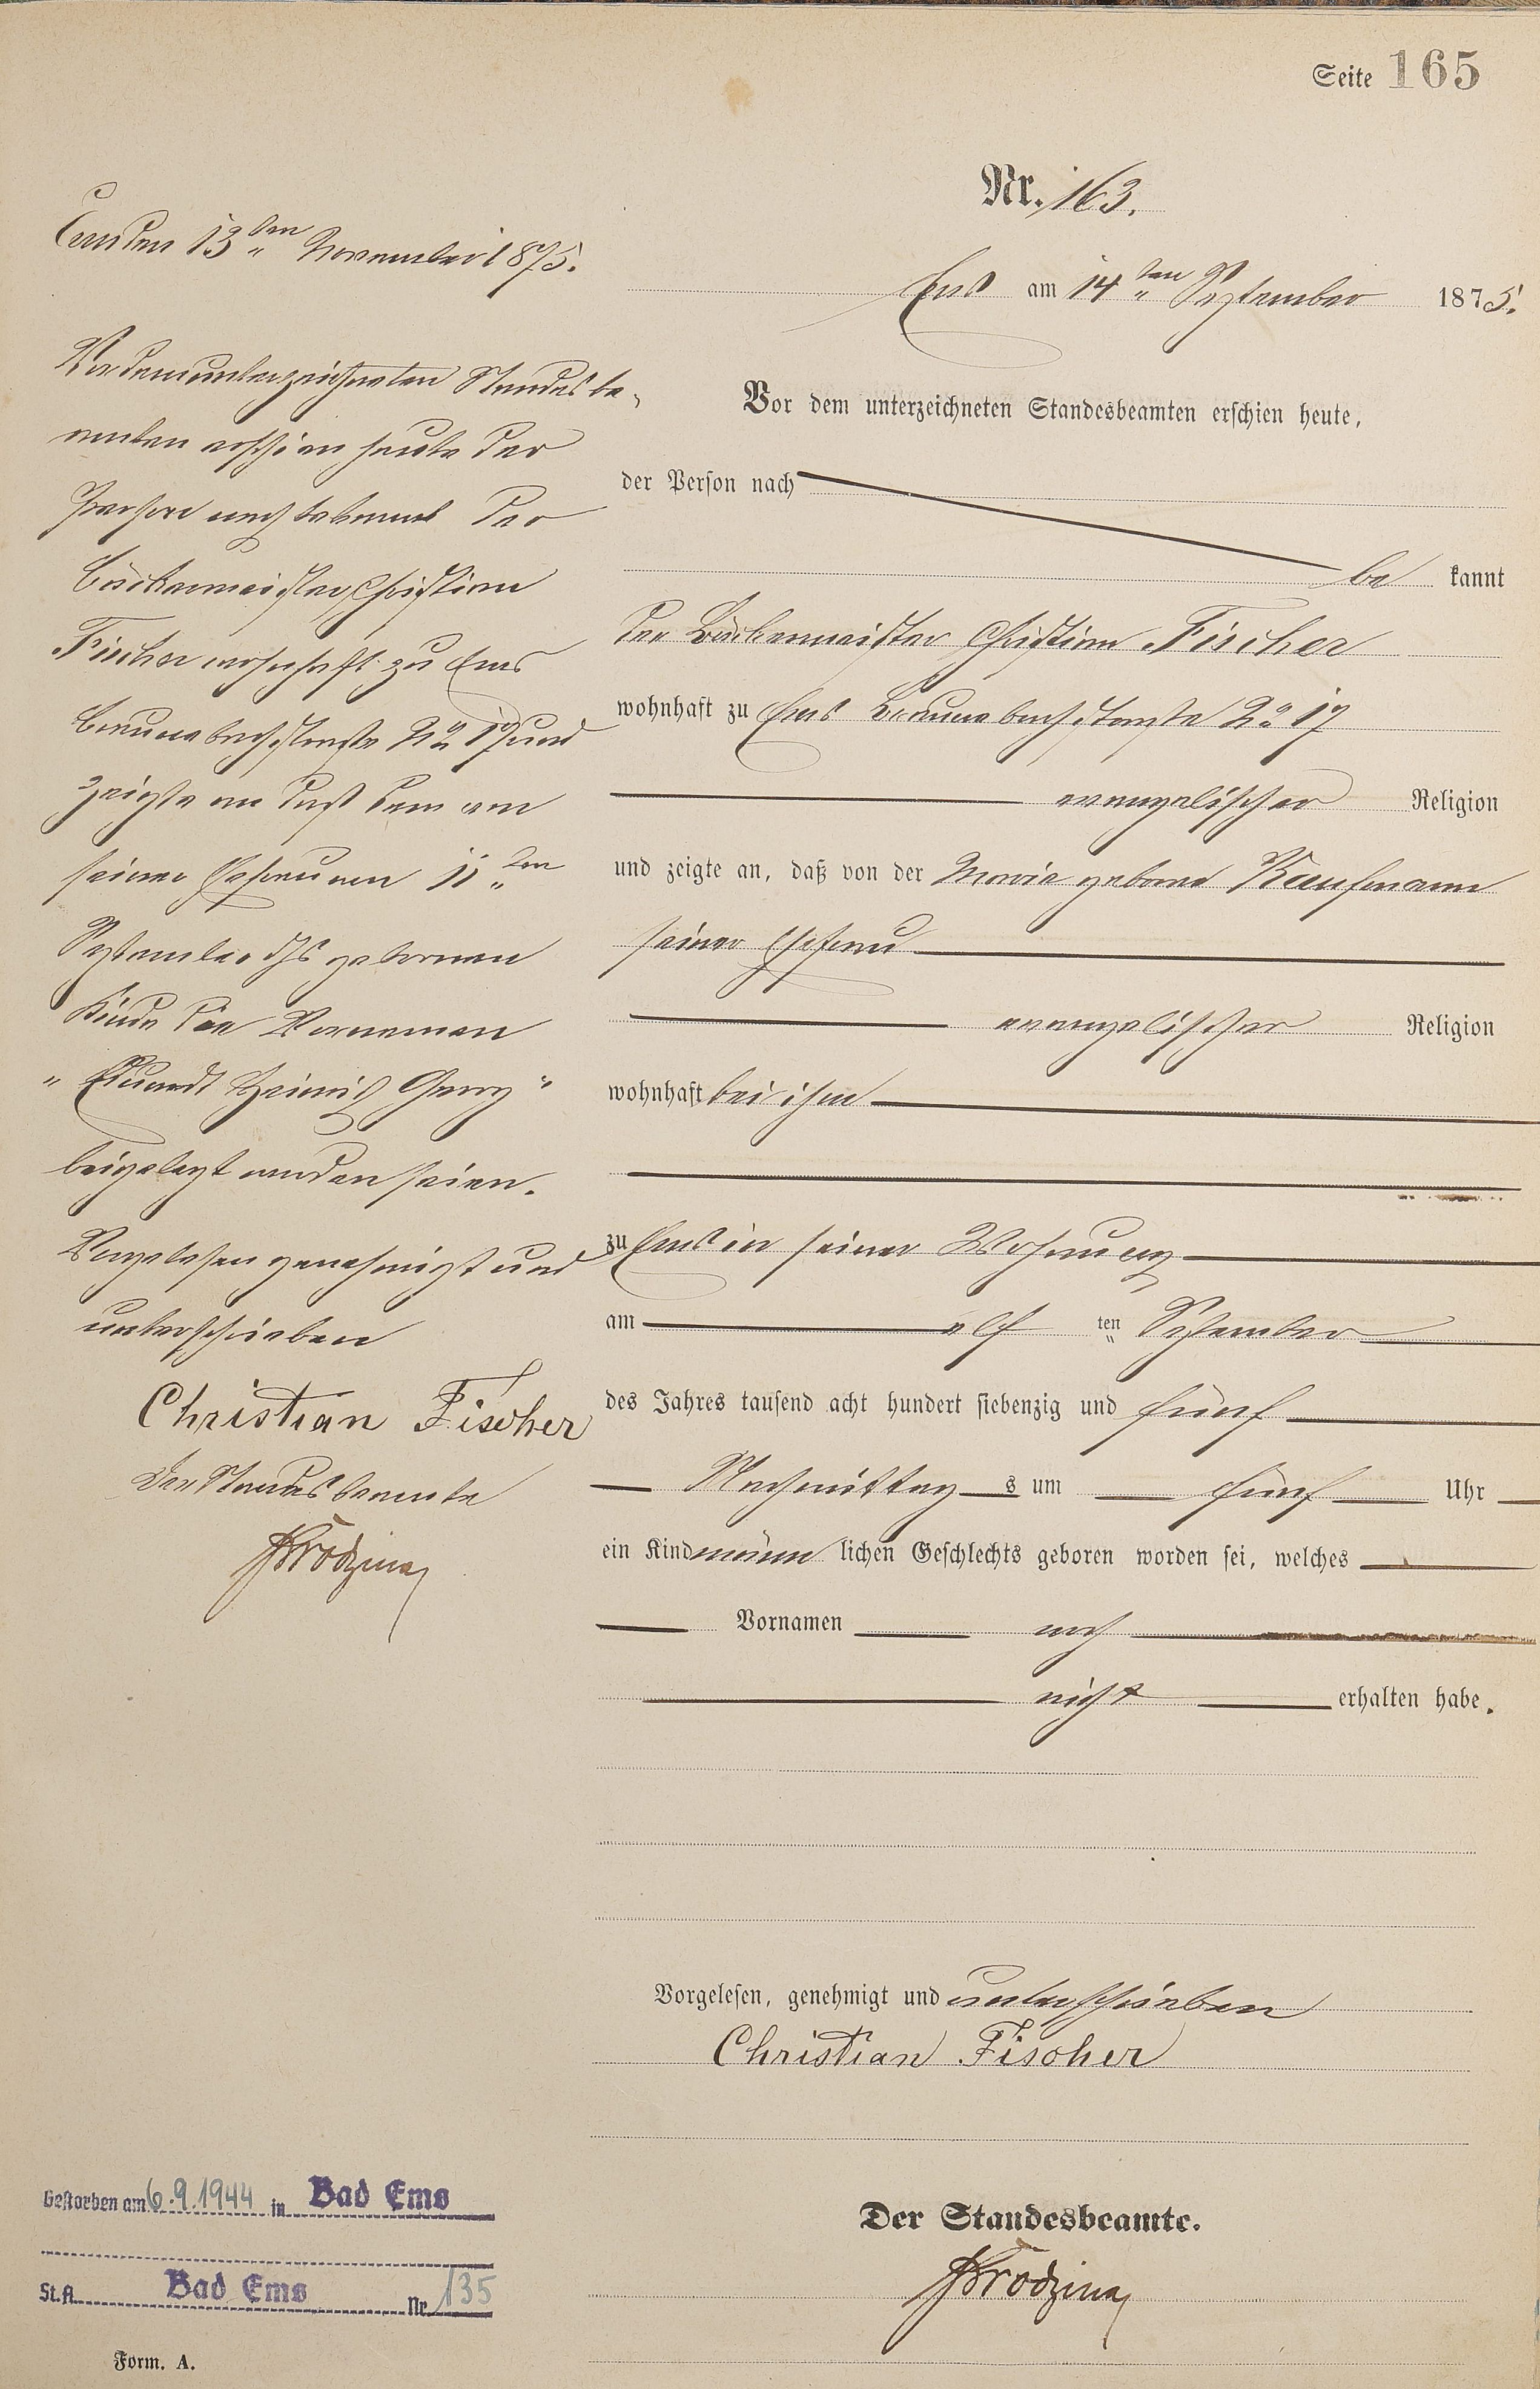 Seite 165
Nr. 163.
Ems am 14ten September 1875.
Vor dem unterzeichneten Standesbeamten erschien heute,
der Person nach
be kannt
der Bäckermeister Christian Fischer
wohnhaft zu Ems Braunebachstraße No 17
evangelischer Religion
und zeigte an, daß von der Maria geborne Kaufmann
seiner Ehefrau
evangelischer Religion
wohnhaft bei ihm
zu Ems in seiner Wohnung
am elf ten September
des Jahres tausend acht hundert siebenzig und fünf
Nachmittag s um fünf Uhr
ein Kind männ lichen Geschlechts geboren worden sei, welches
Vornamen noch
nicht erhalten habe.
Vorgelesen, genehmigt und unterschrieben
Christian Fischer
Der Standesbeamte.
Ems den 13ten November 1875.
Vor dem unterzeichneten Standesbe-
amten erschien heute der
Person nach bekannt der
Bäckermeister Christian
Fischer wohnhaft zu Ems
Braunebachstraße No 17 und
zeigte an daß dem von
seiner Ehefrau am 11ten
September d Js gebornen
Kinde die Vornamen
"Eduardt Heinrich Georg"
beigelegt worden seien.
Vorgelesen genehmigt und
unterschrieben
Christian Fischer
Der Standesbeamte
Gestorben am 6.9.1944 in Bad Ems
St.A. Bad Ems Nr. 135
Form. A.